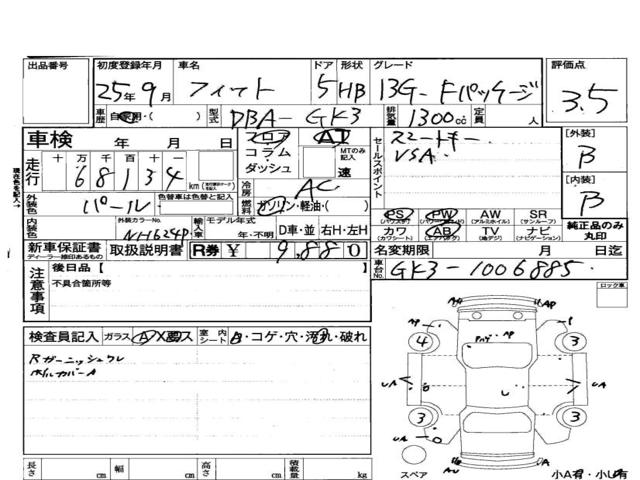 出品番号 初度登録年月 車名 ドア 形状 グレード 評価点
25年9月 フィット 5 HB 13G-Fパッケージ 3.5
車歴 自家用・( ) 型式 DBA-GK3 排気量 1300cc 定員 人
車検 年 月 日 フロア AT セールスポイント スマートキー [外装]
コラム MTのみ記入 VSA B
走行 十 万 千 百 十 一 ダッシュ 速
68134 km 冷房 AC [内装]
外装色 パール 色替車は色替と記入 燃料 ガソリン・軽油・( ) PS PW AW SR B
(パワステ) (パワーウインド) (アルミホイル) (サンルーフ)
内装色 外装カラーNo. NH624P 輸入車 モデル年式 年・不明 D車・並 右H・左H カワ AB TV ナビ 純正品のみ丸印
(カワシート) (エアバッグ) (地デジ) (ナビゲーション)
現在色を記入→
新車保証書 取扱説明書 R券 ¥ 9,880 名変期限 月 日迄
ディーラー捺印あるもの
車台No. GK3-1006885
注意事項 後日品[ ]
不具合箇所等
ロック車
検査員記入 ガラス A X 室内 シート・コゲ・穴・汚れ・破れ
Rガーニッシュワレ
ホイルカバーA
AP
AP
P
4 3
UA UA
U
3 3
UA
A
スペア 小A有・小U有
長さ cm 幅 cm 高さ cm 積載量 kg